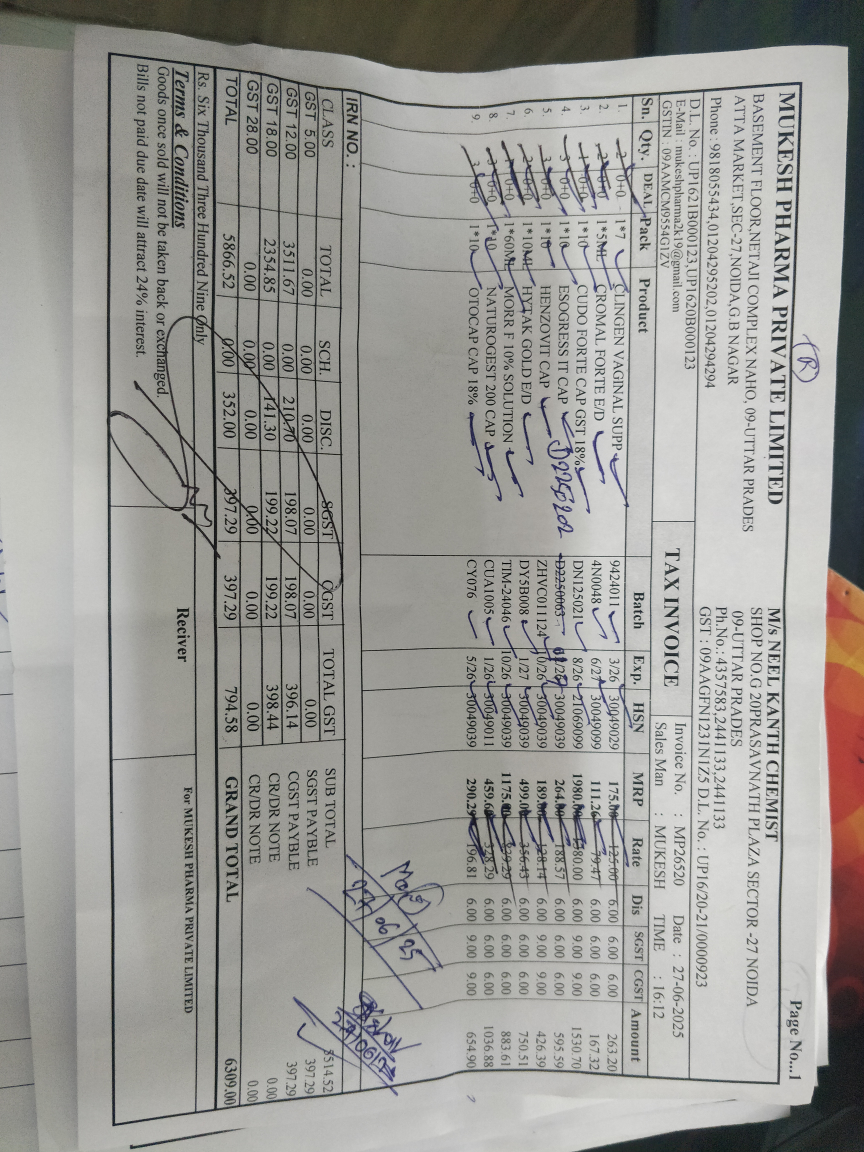 Page No...1
MUKESH PHARMA PRIVATE LIMITED
BASEMENT FLOOR,NETAJI COMPLEX NAHO, 09-UTTAR PRADES
ATTA MARKET,SEC-27,NOIDA,G.B NAGAR
Phone : 9818055434,01204295202,01204294294
D.L. No. : UP1621B000123,UP1620B000123
E-Mail : mukeshpharma2k19@gmail.com
GSTIN : 09AAMCM9554G1ZV
(R)
TAX INVOICE
M/s NEEL KANTH CHEMIST
SHOP NO.G 20PRASAVNATH PLAZA SECTOR -27 NOIDA
09-UTTAR PRADES
Ph.No.: 4357583,2441133,2441133
GST : 09AAGFN1231N1Z5 D.L. No. : UP16/20-21/0000923
Invoice No. : MP26520 Date : 27-06-2025
Sales Man : MUKESH TIME : 16:12
Sn. Qty. DEAL Pack Product Batch Exp. HSN MRP Rate Dis SGST CGST Amount
1. 2 0+0 1*7 CLINGEN VAGINAL SUPP 9424011 3/26 30049029 175.00 125.00 6.00 6.00 6.00 263.20
2. 2 0+0 1*5ML CROMAL FORTE E/D 4N0048 6/27 30049099 111.26 79.47 6.00 6.00 6.00 167.32
3. 1 0+0 1*10 CUDO FORTE CAP GST 18% DN125021 8/26 21069099 1980.00 1380.00 6.00 9.00 9.00 1530.70
4. 3 0+0 1*10 ESOGRESS IT CAP D2250202 D2250063 30049039 264.00 188.57 6.00 6.00 6.00 595.59
5. 3 0+0 1*10 HENZOVIT CAP ZHVC011124 10/26 30049039 189.00 128.14 6.00 9.00 9.00 426.39
6. 2 0+0 1*10ML HYTAK GOLD E/D DY5B008 1/27 30049039 499.00 356.43 6.00 6.00 6.00 750.51
7. 0+0 1*60ML MORR F 10% SOLUTION TIM-24046 10/26 30049039 1175.00 839.29 6.00 6.00 6.00 883.61
8. 3 0+0 1*10 NATUROGEST 200 CAP CUA1005 1/26 30049011 459.60 328.29 6.00 6.00 6.00 1036.88
9. 3 0+0 1*10 OTOCAP CAP 18% CY076 5/26 30049039 290.29 196.81 6.00 9.00 9.00 654.90
27/06/25
IRN NO. :
CLASS TOTAL SCH. DISC. SGST CGST TOTAL GST
GST 5.00 0.00 0.00 0.00 0.00 0.00 0.00
GST 12.00 3511.67 0.00 210.70 198.07 198.07 396.14
GST 18.00 2354.85 0.00 141.30 199.22 199.22 398.44
GST 28.00 0.00 0.00 0.00 0.00 0.00 0.00
TOTAL 5866.52 0.00 352.00 397.29 397.29 794.58
SUB TOTAL 5514.52
SGST PAYBLE 397.29
CGST PAYBLE 397.29
CR/DR NOTE 0.00
CR/DR NOTE 0.00
GRAND TOTAL 6309.00
Rs. Six Thousand Three Hundred Nine Only
Terms & Conditions
Goods once sold will not be taken back or exchanged.
Bills not paid due date will attract 24% interest.
Reciver
For MUKESH PHARMA PRIVATE LIMITED